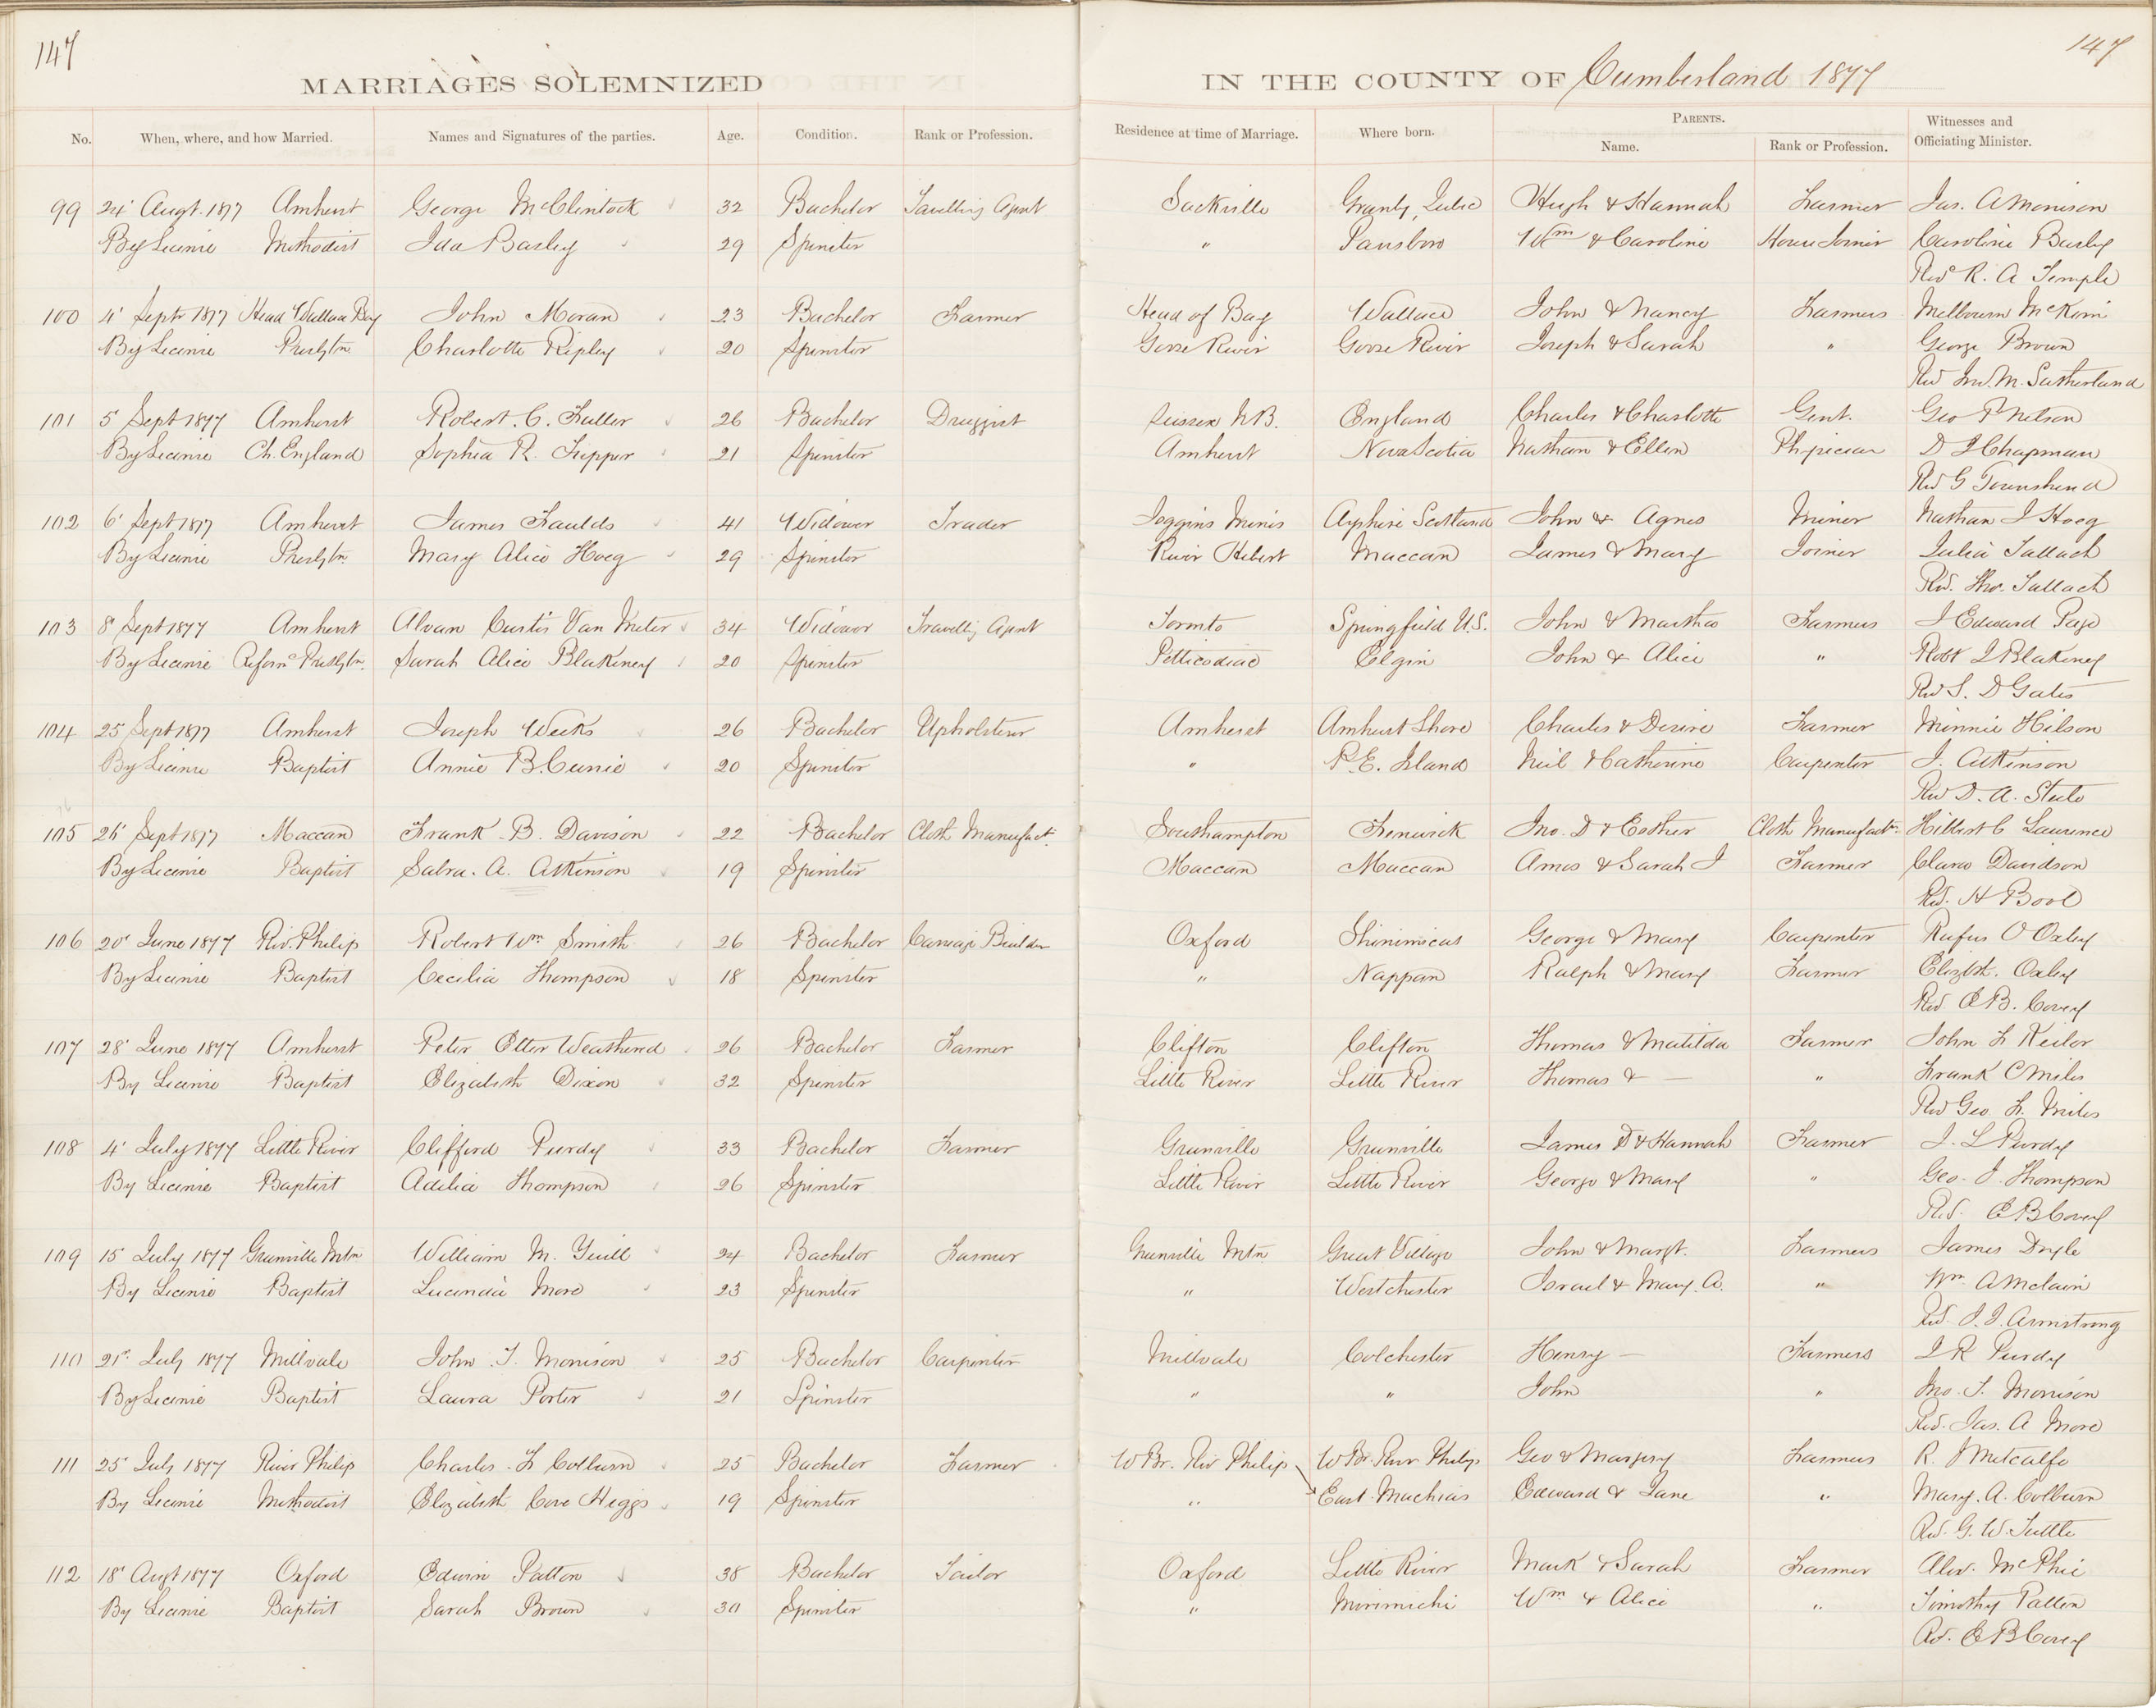 147
147
MARRIAGES SOLEMNIZED IN THE COUNTY OF Cumberland 1877
No. When, where, and how Married. Names and Signatures of the parties. Age. Condition. Rank or Profession. Residence at time of Marriage. Where born. PARENTS. Name. Rank or Profession. Witnesses and Officiating Minister.
99 24' Augt. 1877 Amherst George McClintock 32 Bachelor Travelling Agent Sackville Granby, Quebec Hugh & Hannah Farmer Jas. A Morrison
By Licence Methodist Ida 29 Spinster " Parrsboro Wm & Caroline House Joiner Caroline
Revd R. A Temple
100 4' Sept 1877 Head Wallace Bay John Moran 23 Bachelor Farmer Head of Bay Wallace John & Nancy Farmers Melbourn McKim
By Licence Presbtn Charlotte Ripley 20 Spinster Goose River Goose River Joseph & Sarah " George Brown
Rev Jno. M. Sutherland
101 5' Sept 1877 Amherst Robert. C. Fuller 26 Bachelor Druggist Sussex N.B. England Charles & Charlotte Gent. Geo P Nelson
By Licence Ch. England Sophia R. Tupper 21 Spinster Amherst Nova Scotia Nathan & Ellen Physician D J Chapman
Rev G Townshend
102 6' Sept 1877 Amherst James Faulds 41 Widower Trader Joggins Mines Ayshire Scotland John & Agnes Miner Nathan J Hoeg
By Licence Presbtn. Mary Alice Hoeg 29 Spinster River Hebert Maccan James & Mary Joiner Julia Sallach
Rev. Tho. Sallach
103 8' Sept 1877 Amherst Alvan Curtis Van Meter 34 Widower Travellg Agent Toronto Springfield U.S. John & Martha Farmers J Edward Page
By Licence Reformd Presbtn. Sarah Alice Blakeney 20 Spinster Petticodiac Elgin John & Alice " Robt J Blakeney
Rev S. D Gates
104 25' Sept 1877 Amherst Joseph Weeks 26 Bachelor Upholsterer Amherst Amherst Shore Charles & Desire Farmer Minnie Hilson
By Licence Baptist Annie B. Cunie 20 Spinster " P.E. Island Neil & Catherine Carpenter J. Atkinson
Rev D. A. Steele
105 26' Sept 1877 Maccan Frank B. Davison 22 Bachelor Cloth Manufact. Southampton Fenwick Jno. D & Esther Cloth Manufactr. Hilbert C Lawrence
By Licence Baptist Sabra. A. Atkinson 19 Spinster Maccan Maccan Amos & Sarah J Farmer Clara Davidson
Rev. H Bool
106 20' June 1877 Riv. Philip Robert Wm Smith 26 Bachelor Carriage Builder Oxford Shinimicas George & Mary Carpenter Rufus O Oxley
By Licence Baptist Cecilia Thompson 18 Spinster " Nappan Ralph & Mary Farmer Elizbth. Oxley
Rev E B. Corey
107 28' June 1877 Amherst Peter Etter Weatherred 26 Bachelor Farmer Clifton Clifton Thomas & Matilda Farmer John F Keilor
By Licence Baptist Elizabeth Dixon 32 Spinster Little River Little River Thomas & — " Frank C Miles
Rev Geo. F. Miles
108 4' July 1877 Little River Clifford Purdy 33 Bachelor Farmer Greenville Greenville James D & Hannah Farmer J. L Purdy
By Licence Baptist Adelia Thompson 26 Spinster Little River Little River George & Mary " Geo. J. Thompson
Rev. E B Corey
109 15' July 1877 Greenville Mtn William M. Yuill 24 Bachelor Farmer Greenville Mtn Great Village John & Margt. Farmers James Doyle
By Licence Baptist Lucinda More 23 Spinster " Westchester Israel & Mary. A. " Wm A Mclain
Rev. J. J. Armstrong
110 21st July 1877 Millvale John T. Morrison 25 Bachelor Carpenter Millvale Colchester Henry — Farmers J R Purdy
By Licence Baptist Laura Porter 21 Spinster " " John " Jno. T. Morrison
Rev. Jas. A More
111 25' July 1877 River Philip Charles F Colburn 25 Bachelor Farmer W Br. Riv Philip W Br. River Philip Geo & Margery Farmers R. J Metcalfe
By Licence Methodist Elizabeth Cove Higgs 19 Spinster " East Machias Edward & Jane " Mary. A. Colburn
Rev. G. W. Tuttle
112 18' Augt 1877 Oxford Edwin Patton 38 Bachelor Tailor Oxford Little River Mark & Sarah Farmer Alex. McPhie
By Licence Baptist Sarah Brown 30 Spinster " Mirimichi Wm & Alice " Timothy Patten
Rev. E B Corey